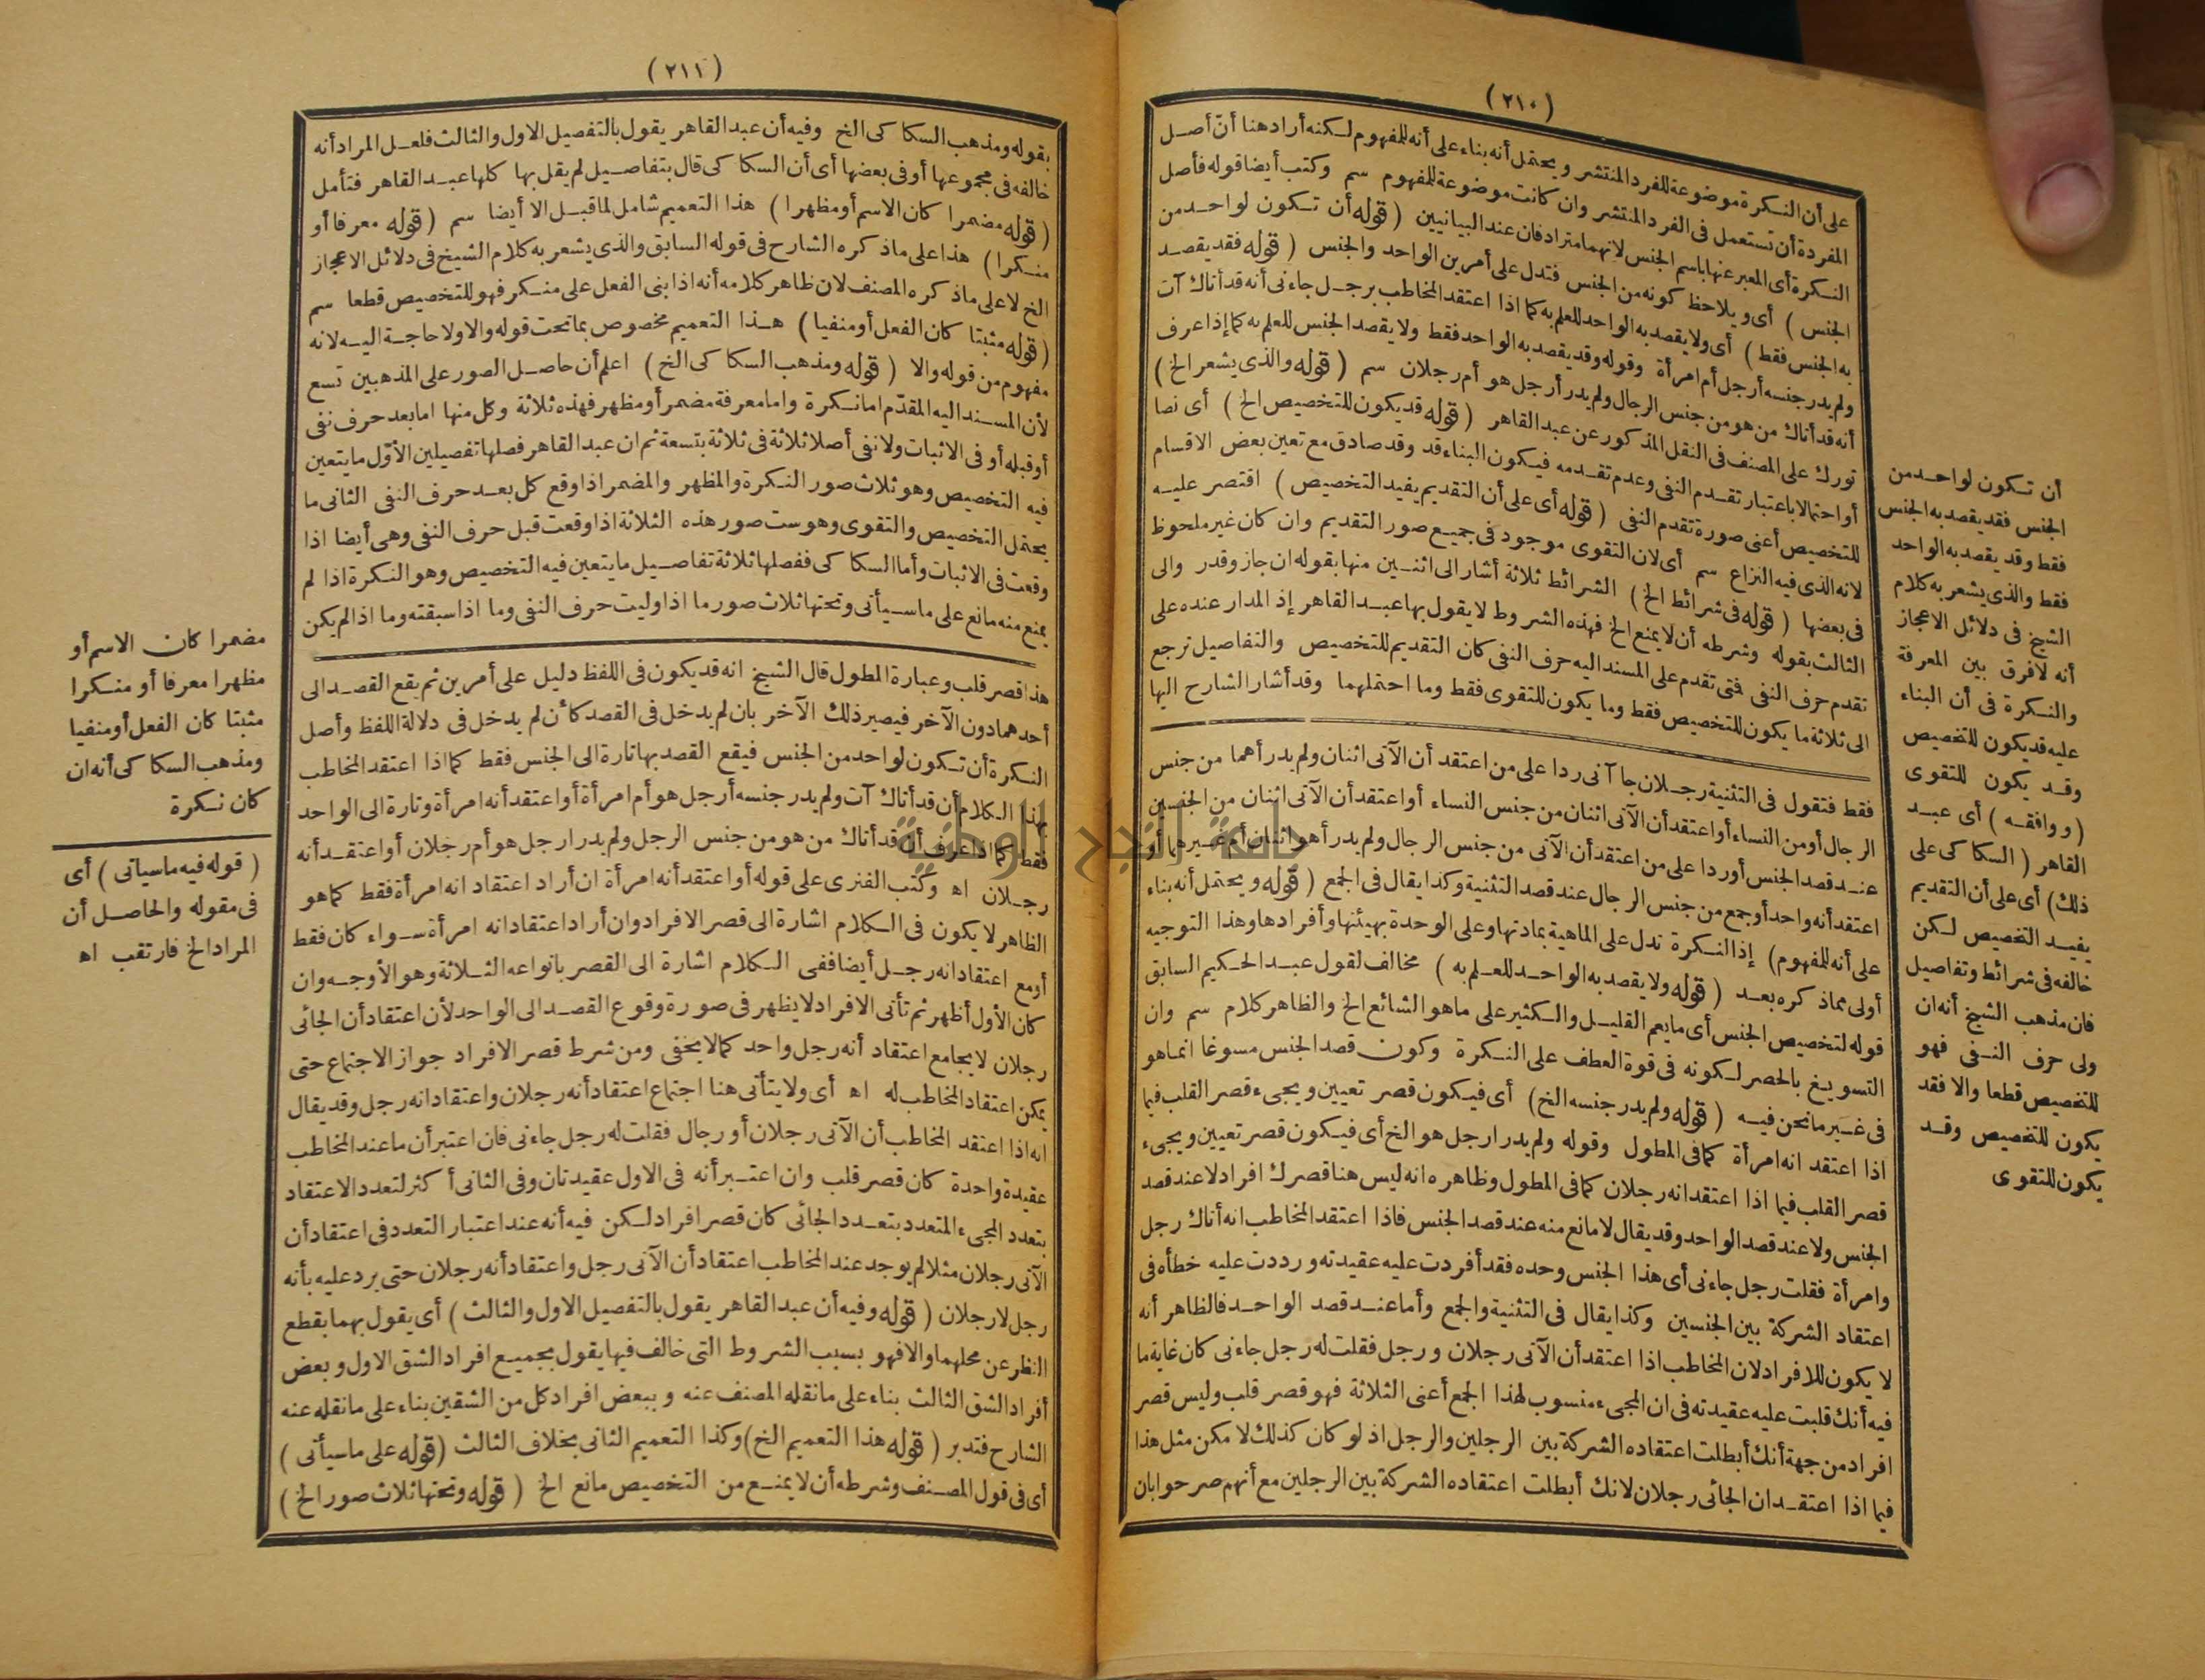 (٢١٠)
على أن النكرة موضوعة للفرد المنتشر ويحتمل أنه بناء على أنه للمفهوم لكنه أراد هنا أنّ أصل
المفردة أن تستعمل فى الفرد المنتشر وان كانت موضوعة للمفهوم سم وكتب أيضا قوله فأصل
النكرة أى المعبر عنها باسم الجنس لانهما مترادفان عند البيانيين (قوله أن تكون لواحد من
الجنس) أى ويلاحظ كونه من الجنس فتدل على أمرين الواحد والجنس (قوله فقد يقصد
به الجنس فقط) أى ولا يقصد به الواحد للعلم به كما اذا اعتقد المخاطب برجل جاءنى أنه قد أتاك آت
ولم يدر جنسه أرجل أم امرأة وقوله وقد يقصد به الواحد فقط ولا يقصد الجنس للعلم به كما إذا عرف
أنه قد أتاك من هو من جنس الرجال ولم يدر أرجل هو أم رجلان سم (قوله والذى يشعر الخ)
تورك على المصنف فى النقل المذكور عن عبد القاهر (قوله قد يكون للتخصيص الخ) أى نصا
أو احتمالا باعتبار تقدم النفى وعدم تقدمه فيكون البناء قد وقد صادق مع تعين بعض الاقسام
للتخصيص أعنى صورة تقدم النفى (قوله أى على أن التقديم يفيد التخصيص) اقتصر عليه
لانه الذى فيه النزاع سم أى لان التقوى موجود فى جميع صور التقديم وان كان غير ملحوظ
فى بعضها (قوله فى شرائط الخ) الشرائط ثلاثة أشار الى اثنين منها بقوله ان جاز وقدر والى
الثالث بقوله وشرطه أن لا يمنع الخ فهذه الشروط لا يقول بها عبد القاهر إذ المدار عنده على
تقدم حرف النفى فتى تقدم على المسند اليه حرف النفى كان التقديم للتخصيص والتفاصيل ترجع
الى ثلاثة ما يكون للتخصيص فقط وما يكون للتقوى فقط وما احتملهما وقد أشار الشارح اليها
فقط فتقول فى التثنية رجلان جاآنى ردا على من اعتقد أن الآتى اثنان ولم يدر أهما من جنس
الرجال أو من النساء أو اعتقد أن الآتى اثنان من جنس النساء أو اعتقد أن الآتى اثنان من الجنسين
عند قصد الجنس أو ردا على من اعتقد أن الآتى من جنس الرجال ولم يدر أهو اثنان أم غيرهما أو
اعتقد أنه واحد أو جمع من جنس الرجال عند قصد التثنية وكذا يقال فى الجمع (قوله ويحتمل أنه بناء
على أنه للمفهوم) إذ النكرة تدل على الماهية بمادتها وعلى الوحدة بهيئتها وأفرادها وهذا التوجيه
أولى مما ذكره بعد (قوله ولا يقصد به الواحد للعلم به) مخالف لقول عبد الحكيم السابق
قوله لتخصيص الجنس أى ما يعم القليل والكثير على ما هو الشائع الخ والظاهر كلام سم وان
التسويغ بالحصر لكونه فى قوة العطف على النكرة وكون قصد الجنس مسوغا انما هو
فى غير ما نحن فيه (قوله ولم يدر جنسه الخ) أى فيكون قصر تعيين ويجىء قصر القلب فيما
اذا اعتقد انه امرأة كما فى المطول وقوله ولم يدر ارجل هو الخ أى فيكون قصر تعيين ويجىء
قصر القلب فيما اذا اعتقد انه رجلان كما فى المطول وظاهره انه ليس هنا قصرك افراد لا عند قصد
الجنس ولا عند قصد الواحد وقد يقال لا مانع منه عند قصد الجنس فاذا اعتقد المخاطب انه أتاك رجل
وامرأة فقلت رجل جاءنى أى هذا الجنس وحده فقد أفردت عليه عقيدته ورددت عليه خطأه فى
اعتقاد الشركة بين الجنسين وكذا يقال فى التثنية والجمع وأما عند قصد الواحد فالظاهر أنه
لا يكون للافراد لان المخاطب اذا اعتقد أن الآتى رجلان ورجل فقلت له رجل جاءنى كان غاية ما
فيه أنك قلبت عليه عقيدته فى ان المجىء منسوب لهذا الجمع أعنى الثلاثة فهو قصر قلب وليس قصر
افراد من جهة أنك أبطلت اعتقاده الشركة بين الرجلين والرجل اذ لو كان كذلك لامكن مثل هذا
فيما اذا اعتقد ان الجائى رجلان لانك أبطلت اعتقاده الشركة بين الرجلين مع أنهم صرحوا بان
أن تكون لواحد من
الجنس فقد يقصد به الجنس
فقط وقد يقصد به الواحد
فقط والذى يشعر به كلام
الشيخ فى دلائل الاعجاز
أنه لا فرق بين المعرفة
والنكرة فى أن البناء
عليه قد يكون للتخصيص
وقد يكون للتقوى
(ووافقه) أى عبد
القاهر (السكاكى على
ذلك) أى على أن التقديم
يفيد التخصيص لكن
خالفه فى شرائط وتفاصيل
فان مذهب الشيخ أنه ان
ولى حرف النفى فهو
للتخصيص قطعا والا فقد
يكون للتخصيص وقد
يكون للتقوى
(٢١١)
بقوله ومذهب السكاكى الخ وفيه أن عبد القاهر يقول بالتفصيل الاول والثالث فلعل المراد أنه
خالفه فى مجموعها أو فى بعضها أى أن السكاكى قال بتفاصيل لم يقل بها كلها عبد القاهر فتأمل
(قوله مضمرا كان الاسم أو مظهرا) هذا التعميم شامل لما قبل الا أيضا سم (قوله معرفا أو
منكرا) هذا على ما ذكره الشارح فى قوله السابق والذى يشعر به كلام الشيخ فى دلائل الاعجاز
الخ لا على ما ذكره المصنف لان ظاهر كلامه أنه اذا بنى الفعل على منكر فهو للتخصيص قطعا سم
(قوله مثبتا كان الفعل أو منفيا) هذا التعميم مخصوص بما تحت قوله والا ولا حاجة اليه لانه
مفهوم من قوله والا (قوله ومذهب السكاكى الخ) اعلم أن حاصل الصور على المذهبين تسع
لأن المسند اليه المقدّم اما نكرة واما معرفة مضمر أو مظهر فهذه ثلاثة وكل منها اما بعد حرف نفى
أو قبله أو فى الاثبات ولا نفى أصلا ثلاثة فى ثلاثة بتسعة ثم ان عبد القاهر فصلها تفصيلين الأوّل ما يتعين
فيه التخصيص وهو ثلاث صور النكرة والمظهر والمضمر اذا وقع كل بعد حرف النفى الثانى ما
يحتمل التخصيص والتقوى وهو ست صور هذه الثلاثة اذا وقعت قبل حرف النفى وهى أيضا اذا
وقعت فى الاثبات وأما السكاكى ففصلها ثلاثة تفاصيل ما يتعين فيه التخصيص وهو النكرة اذا لم
يمنع منه مانع على ما سيأتى وتحتها ثلاث صور ما اذا وليت حرف النفى وما اذا سبقته وما اذا لم يكن
هذا قصر قلب وعبارة المطول قال الشيخ انه قد يكون فى اللفظ دليل على أمرين ثم يقع القصد الى
أحدهما دون الآخر فيصير ذلك الآخر بان لم يدخل فى القصد كأن لم يدخل فى دلالة اللفظ وأصل
النكرة أن تكون لواحد من الجنس فيقع القصد بها تارة الى الجنس فقط كما اذا اعتقد المخاطب
بهذا الكلام أن قد أتاك آت ولم يدر جنسه أرجل هو أم امرأة أو اعتقد أنه امرأة وتارة الى الواحد
فقط كما اذا عرف أنه قد أتاك من هو من جنس الرجل ولم يدر ارجل هو أم رجلان أو اعتقد أنه
رجلان اه وكتب الفنرى على قوله أو اعتقد أنه امرأة ان أراد اعتقاد انه امرأة فقط كما هو
الظاهر لا يكون فى الكلام اشارة الى قصر الافراد وان أراد اعتقاد انه امرأة سواء كان فقط
أو مع اعتقاد انه رجل أيضا ففى الكلام اشارة الى القصر بانواعه الثلاثة وهو الأوجه وان
كان الأول أظهر ثم تأتى الافراد لا يظهر فى صورة وقوع القصد الى الواحد لأن اعتقاد أن الجائى
رجلان لا يجامع اعتقاد أنه رجل واحد كما لا يخفى ومن شرط قصر الافراد جواز الاجتماع حتى
يمكن اعتقاد المخاطب له اه أى ولا يتأتى هنا اجتماع اعتقاد أنه رجلان واعتقاد انه رجل وقد يقال
انه اذا اعتقد المخاطب أن الآتى رجلان أو رجال فقلت له رجل جاءنى فان اعتبر أن ما عند المخاطب
عقيدة واحدة كان قصر قلب وان اعتبر أنه فى الاول عقيدتان وفى الثانى أكثر لتعدد الاعتقاد
بتعدد المجىء المتعدد بتعدد الجائى كان قصر افراد لكن فيه أنه عند اعتبار التعدد فى اعتقاد أن
الآتى رجلان مثلا لم يوجد عند المخاطب اعتقاد أن الآتى رجل واعتقاد أنه رجلان حتى يرد عليه بأنه
رجل لا رجلان (قوله وفيه أن عبد القاهر يقول بالتفصيل الاول والثالث) أى يقول بهما بقطع
النظر عن محلهما والا فهو بسبب الشروط التى خالف فيها يقول بجميع افراد الشق الاول وبعض
أفراد الشق الثالث بناء على ما نقله المصنف عنه وببعض افراد كل من الشقين بناء على ما نقله عنه
الشارح فتدبر (قوله هذا التعميم الخ) وكذا التعميم الثانى بخلاف الثالث (قوله على ما سيأتى)
أى فى قول المصنف وشرطه أن لا يمنع من التخصيص مانع الخ (قوله وتحتها ثلاث صور الخ)
مضمرا كان الاسم أو
مظهرا معرفا أو منكرا
مثبتا كان الفعل أو منفيا
ومذهب السكاكى أنه ان
كان نكرة
(قوله فيه ما سيأتى) أى
فى مقوله والحاصل أن
المراد الخ فارتقب اه
جامعة النجاح الوطنية